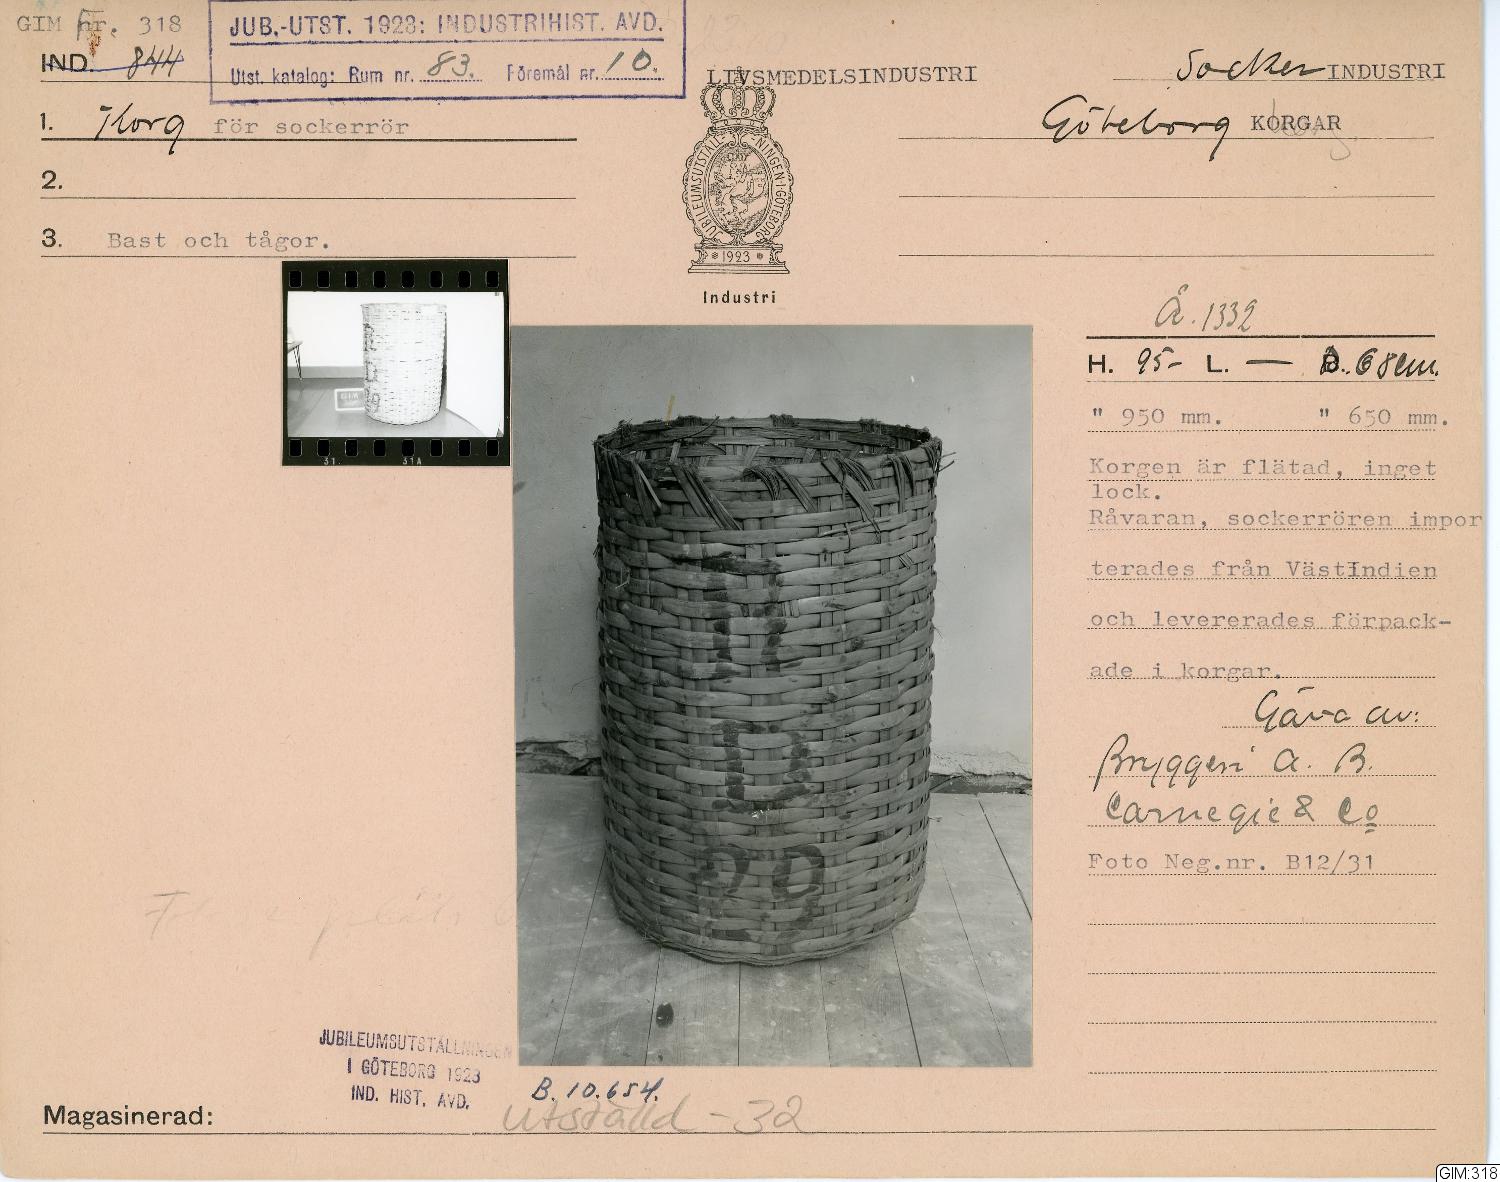 GIM nr. 318
IND. 844
JUB.-UTST. 1923: INDUSTRIHIST. AVD.
Utst. katalog: Rum nr. 83. Föremål nr. 10.
LIVSMEDELSINDUSTRI
Socker INDUSTRI
1. Korg för sockerrör
Göteborg KORGAR
2.
3. Bast och tågor.
JUBILEUMSUTSTÄLLNINGEN I GÖTEBORG
* 1923 *
Industri
Å. 1332
H. 95- L. — B. 68 cm.
" 950 mm. " 650 mm.
Korgen är flätad, inget
lock.
Råvaran, sockerrören impor
terades från VästIndien
och levererades förpack-
ade i korgar.
Gåva av:
Bryggeri A. B.
Carnegie & Co
Foto Neg.nr. B12/31
31. 31A
GIM
JUBILEUMSUTSTÄLLNINGEN
I GÖTEBORG 1923
IND. HIST. AVD.
B. 10.654.
Magasinerad:
utställd - 32
GIM:318